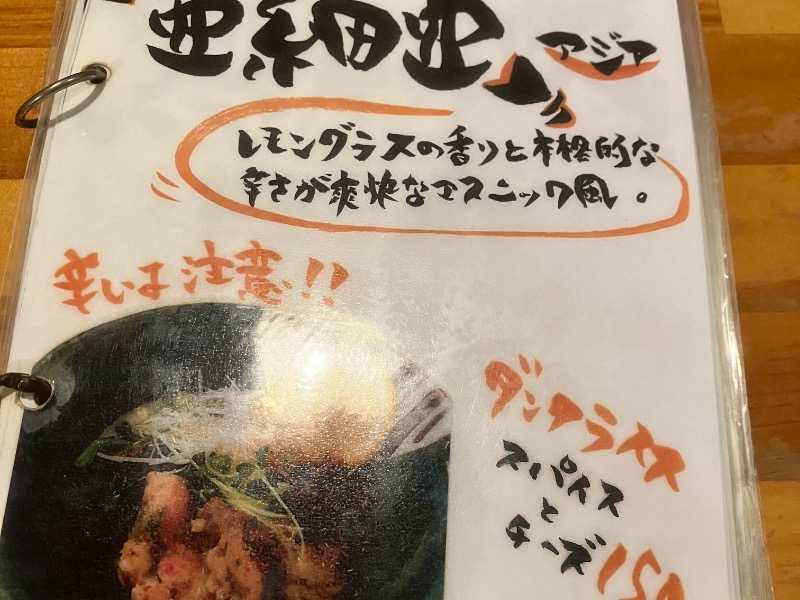 亜細亜
アジア
レモングラスの香りと本格的な
辛さが爽快なエスニック風。
辛い注意!!
スパイス
と
チーズ